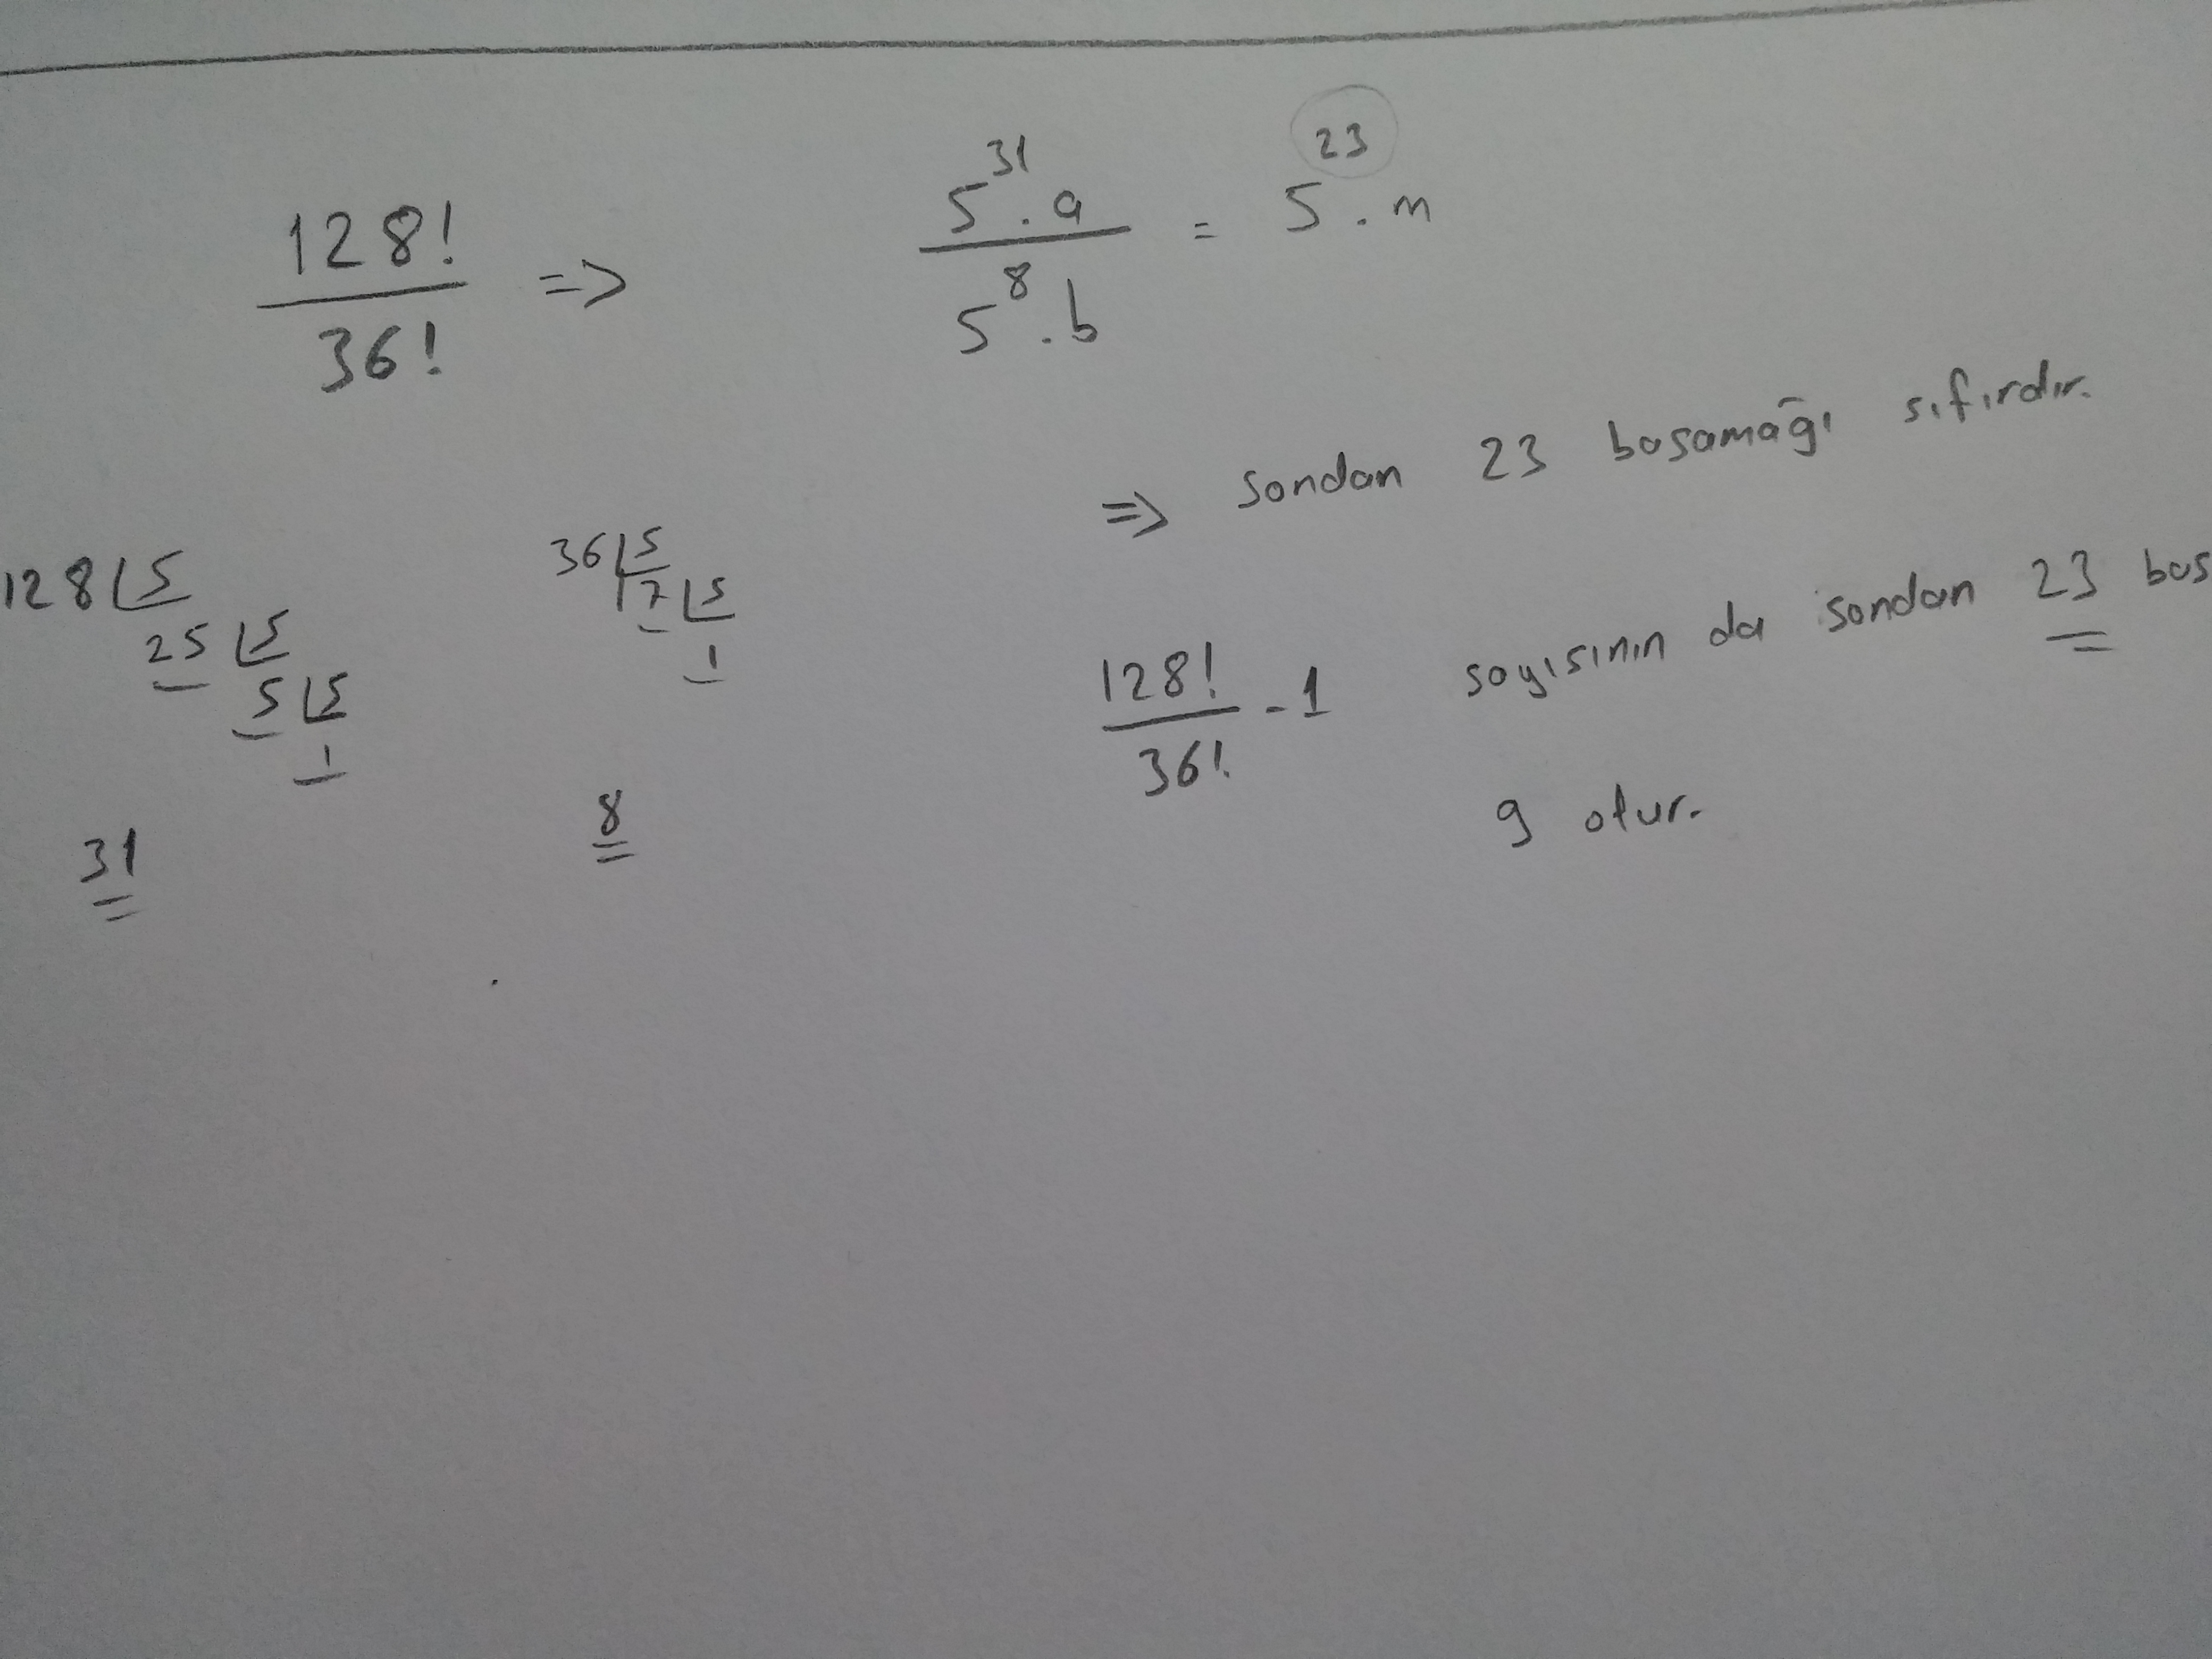 128! / 36! => 5^31 . a / 5^8 . b = 5^23 . m
=> sondan 23 basamağı sıfırdır.
128 | 5
25 | 5
5 | 5
1
31
36 | 5
7 | 5
1
8
128! / 36! - 1 sayısının da sondan 23 bas
9 olur.